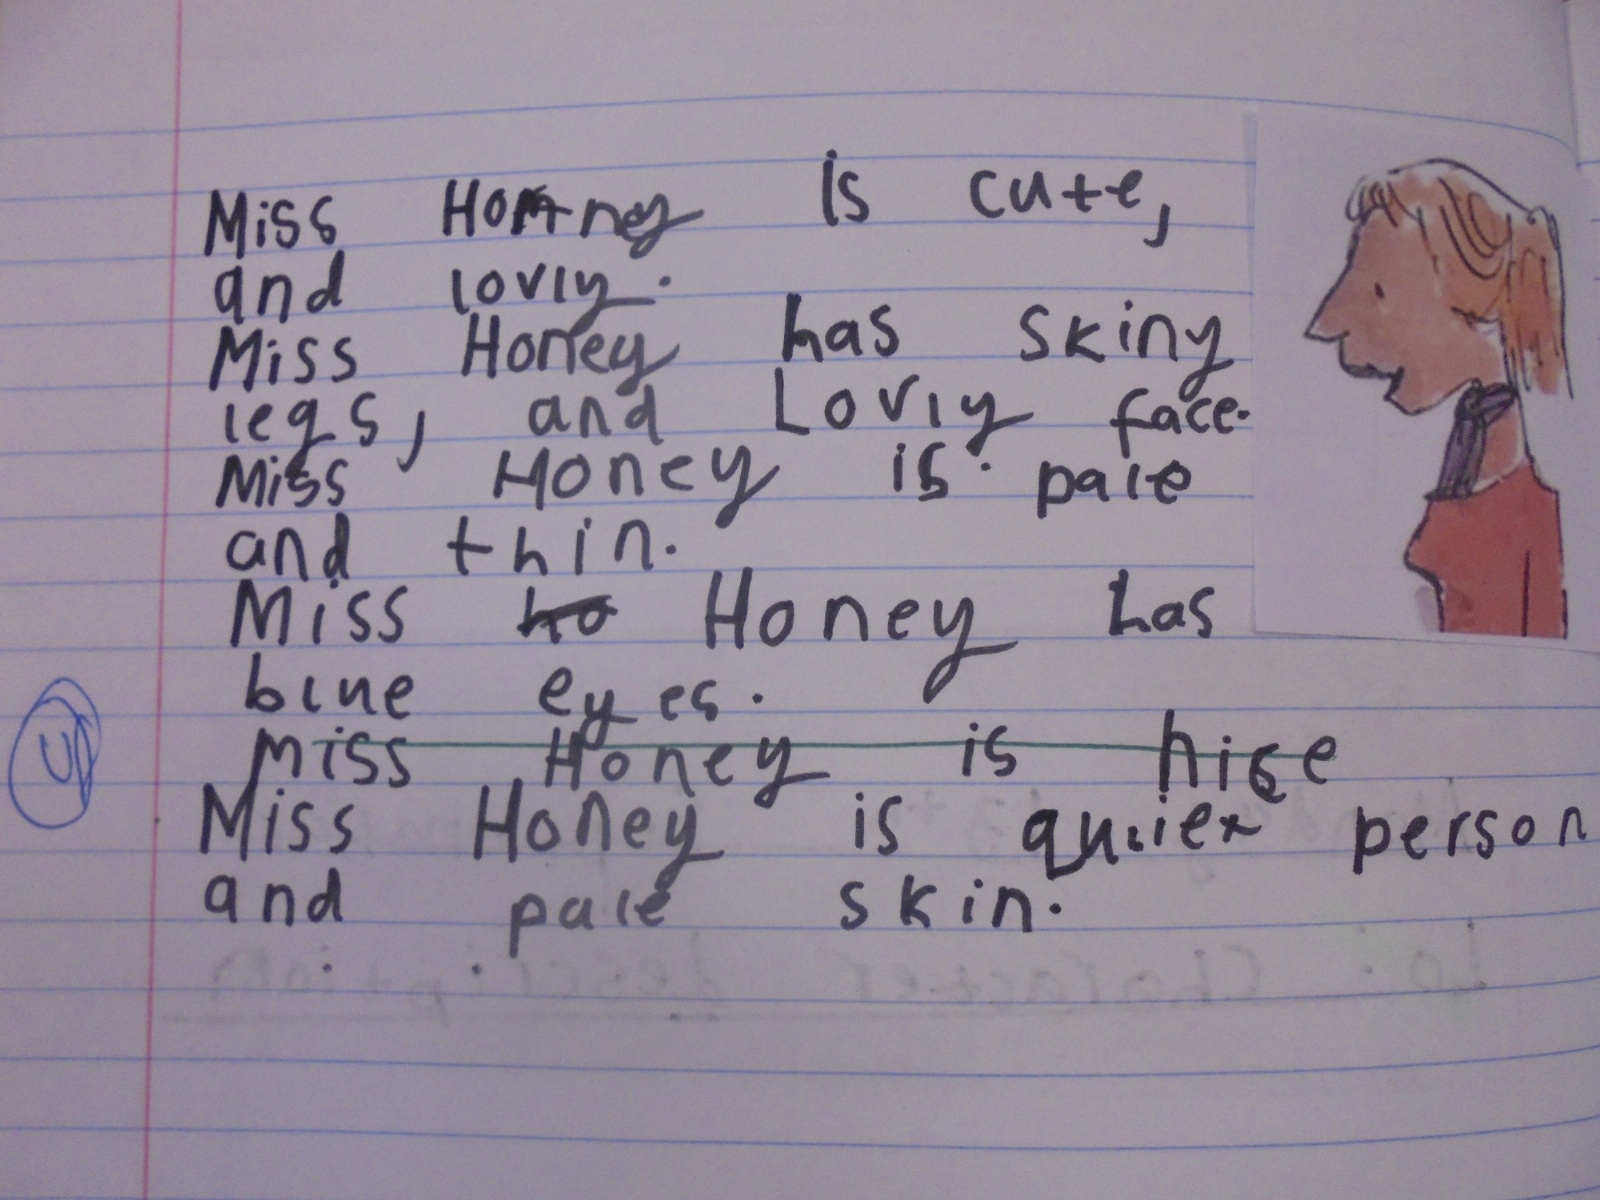 Miss Honey is cute,
and lovly.
Miss Honey has skiny
legs, and Lovly face.
Miss Honey is pale
and thin.
Miss ho Honey has
blue eyes.
miss Honey is nice
Miss Honey is quiet person
and pale skin.
Lo: Character description